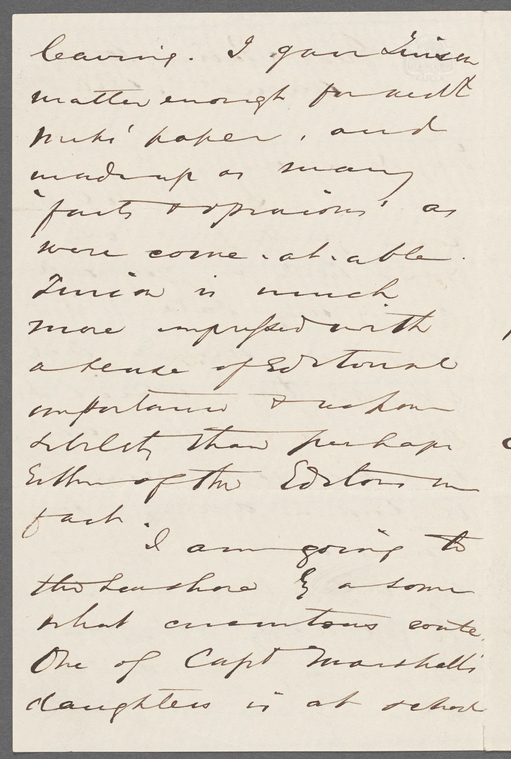 leaving. I gave Linson
matter enough for next
weeks' paper, and
made up as many
'facts & opinions' as
were come-at-able.
Linson is much
more impressed with
a sense of Editorial
importance & respon-
sibility than perhaps
Either of the Editors in
fact.
I am going to
the seashore by a some
what circuitous route.
One of Capt Marshall's
daughters is at school